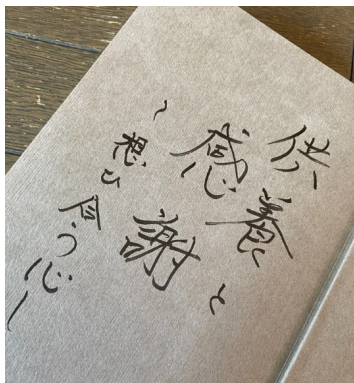 供養と
感謝
~想ひ合う心~